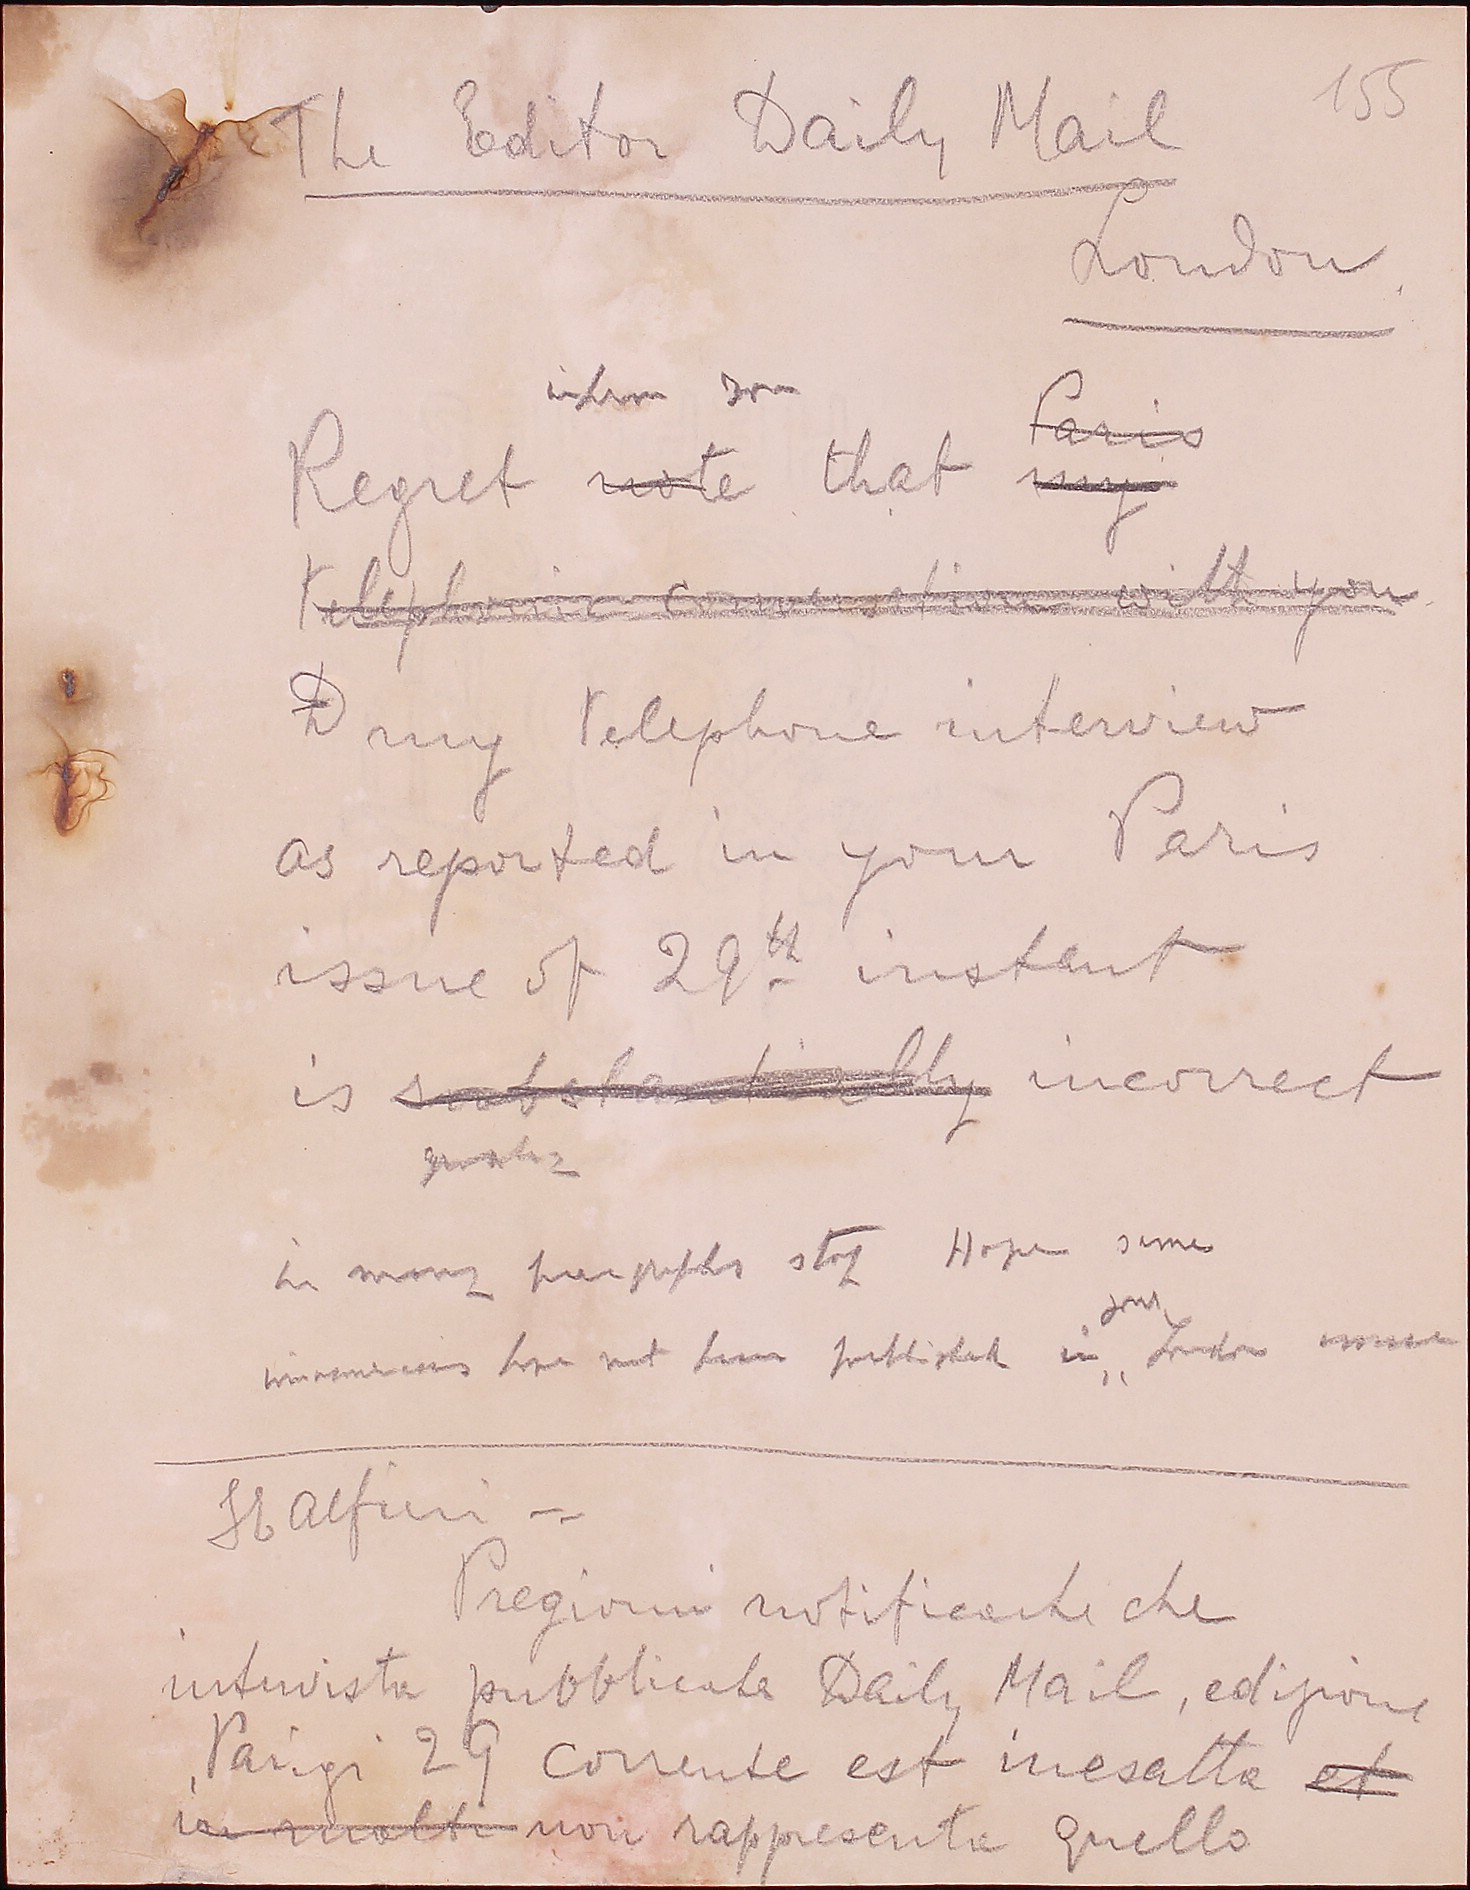 155
The Editor Daily Mail
London.
inform you
Paris
Regret note that my
telephonic conversation with you
my telephone interview
as reported in your Paris
issue of 29th instant
is substantially incorrect
in many paragraphs stop Hope same
your
have not been published in London issue
Pregiomi notificarle che
intervista pubblicata Daily Mail, edizione
Parigi 29 corrente est inesatta et
in molti non rappresenta quello